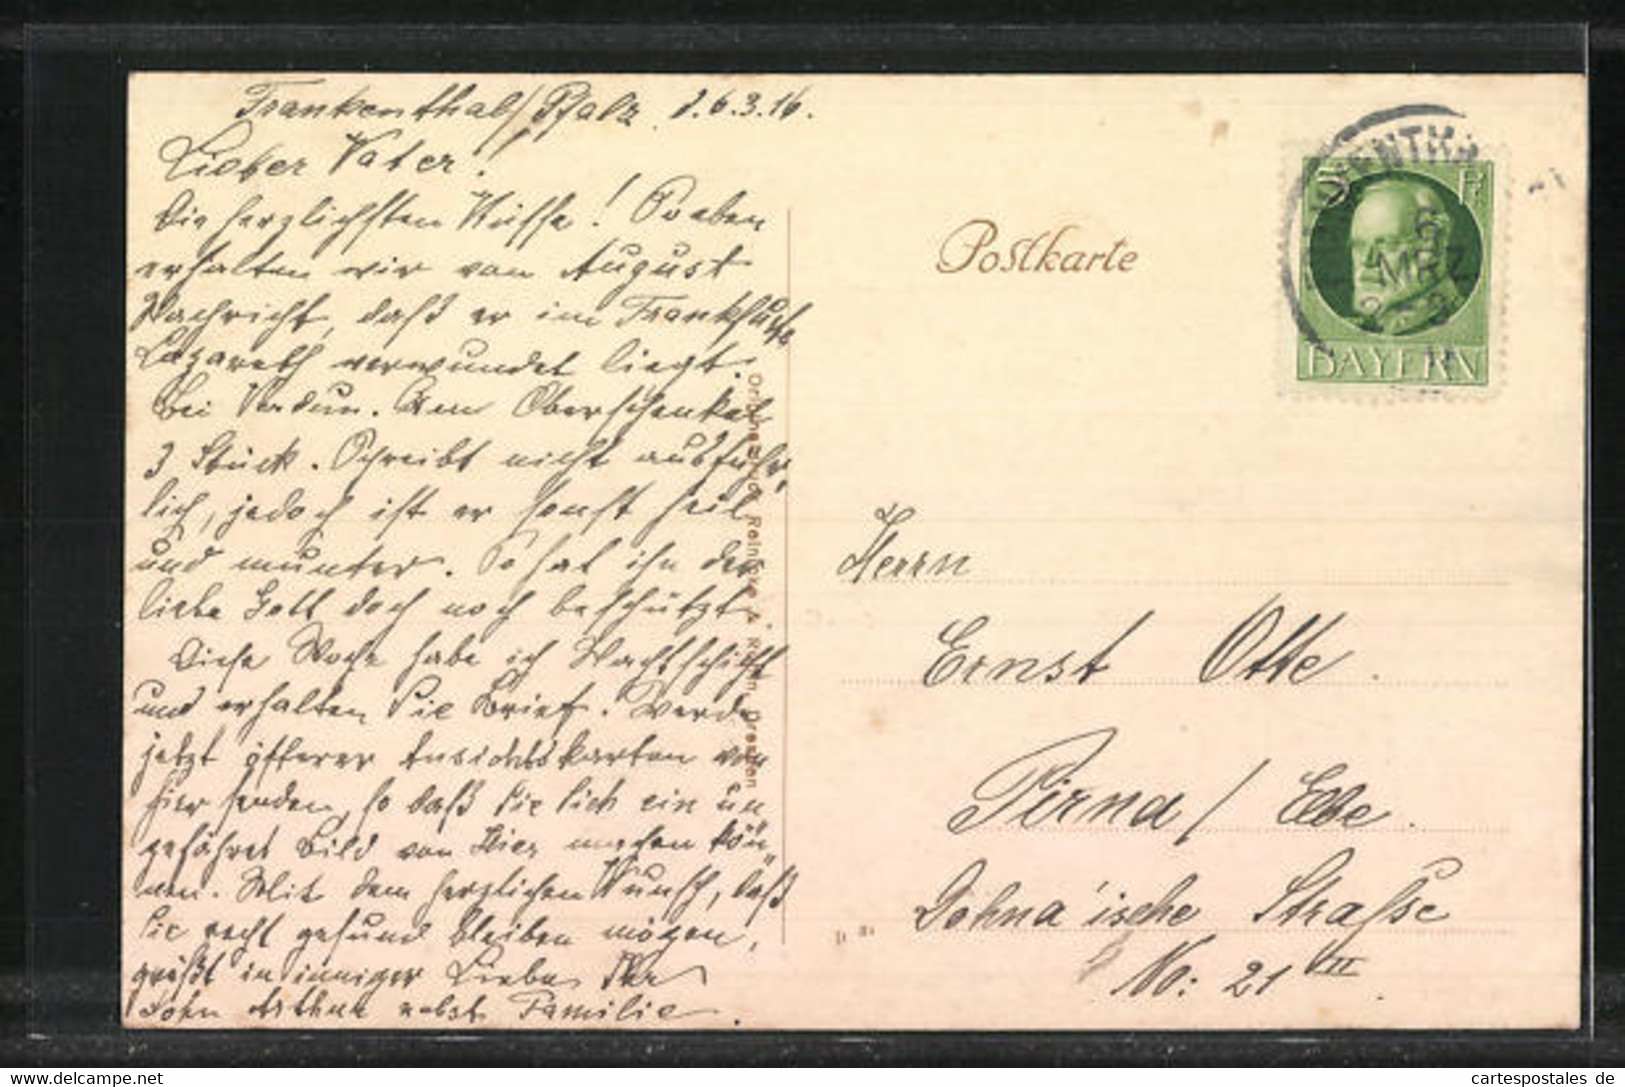 Frankenthal/Pfalz. d. 6.3.16.
Lieber Vater!
Die herzlichsten Küsse! Soeben
erhalten wir von August
Nachricht, daß er im Frankfurter
Lazareth verwundet liegt.
Bei Verdun. Am Oberschenkel
3 Stück. Schreibt nicht ausführ-
lich, jedoch ist er sonst heil
und munter. So hat ihn der
liebe Gott doch noch beschützt.
Diese Woche habe ich Nachtschicht
und erhalten Sie Brief. Werde
jetzt öfterer Ansichtskarten von
hier senden, so daß Sie sich ein un-
gefähret Bild von Hier machen kön-
nen. Mit dem herzlichen Wunsch, daß
Sie recht gesund bleiben mögen,
grüßt in inniger Liebe Ihr
Sohn Arthur nebst Familie.
Postkarte
BAYERN
6 MRZ
Herrn
Ernst Otte.
Pirna / Elbe.
Dohna'ische Strasse
No: 21 III.
Dresden
cartespostales de